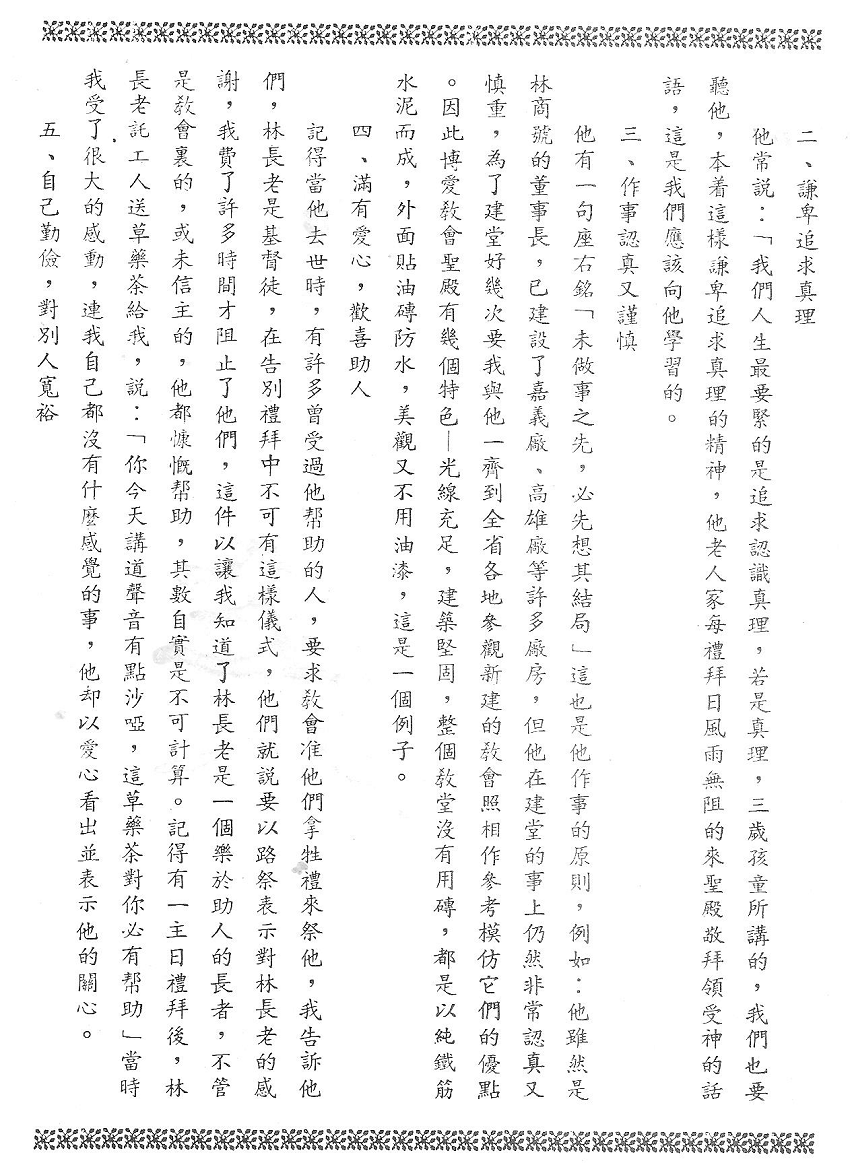 二、謙卑追求真理
他常説：「我們人生最要緊的是追求認識真理，若是真理，三歲孩童所講的，我們也要
聽他，本着這樣謙卑追求真理的精神，他老人家每禮拜日風雨無阻的來聖殿敬拜領受神的話
語，這是我們應該向他學習的。
三、作事認真又謹慎
他有一句座右銘「未做事之先，必先想其結局」這也是他作事的原則，例如：他雖然是
林商號的董事長，已建設了嘉義廠、高雄廠等許多廠房，但他在建堂的事上仍然非常認真又
慎重，為了建堂好幾次要我與他一齊到全省各地參觀新建的教會照相作參考模仿它們的優點
。因此博愛教會聖殿有幾個特色—光線充足，建築堅固，整個教堂沒有用磚，都是以純鐵筋
水泥而成，外面貼油磚防水，美觀又不用油漆，這是一個例子。
四、滿有愛心，歡喜助人
記得當他去世時，有許多曾受過他帮助的人，要求教會准他們拿牲禮來祭他，我告訴他
們，林長老是基督徒，在告別禮拜中不可有這樣儀式，他們就説要以路祭表示對林長老的感
謝，我費了許多時間才阻止了他們，這件以讓我知道了林長老是一個樂於助人的長者，不管
是教會裏的，或未信主的，他都慷慨帮助，其數自實是不可計算。記得有一主日禮拜後，林
長老託工人送草藥茶給我，説：「你今天講道聲音有點沙啞，這草藥茶對你必有帮助」當時
我受了很大的感動，連我自己都沒有什麼感覺的事，他却以愛心看出並表示他的關心。
五、自己勤儉，對別人寬裕